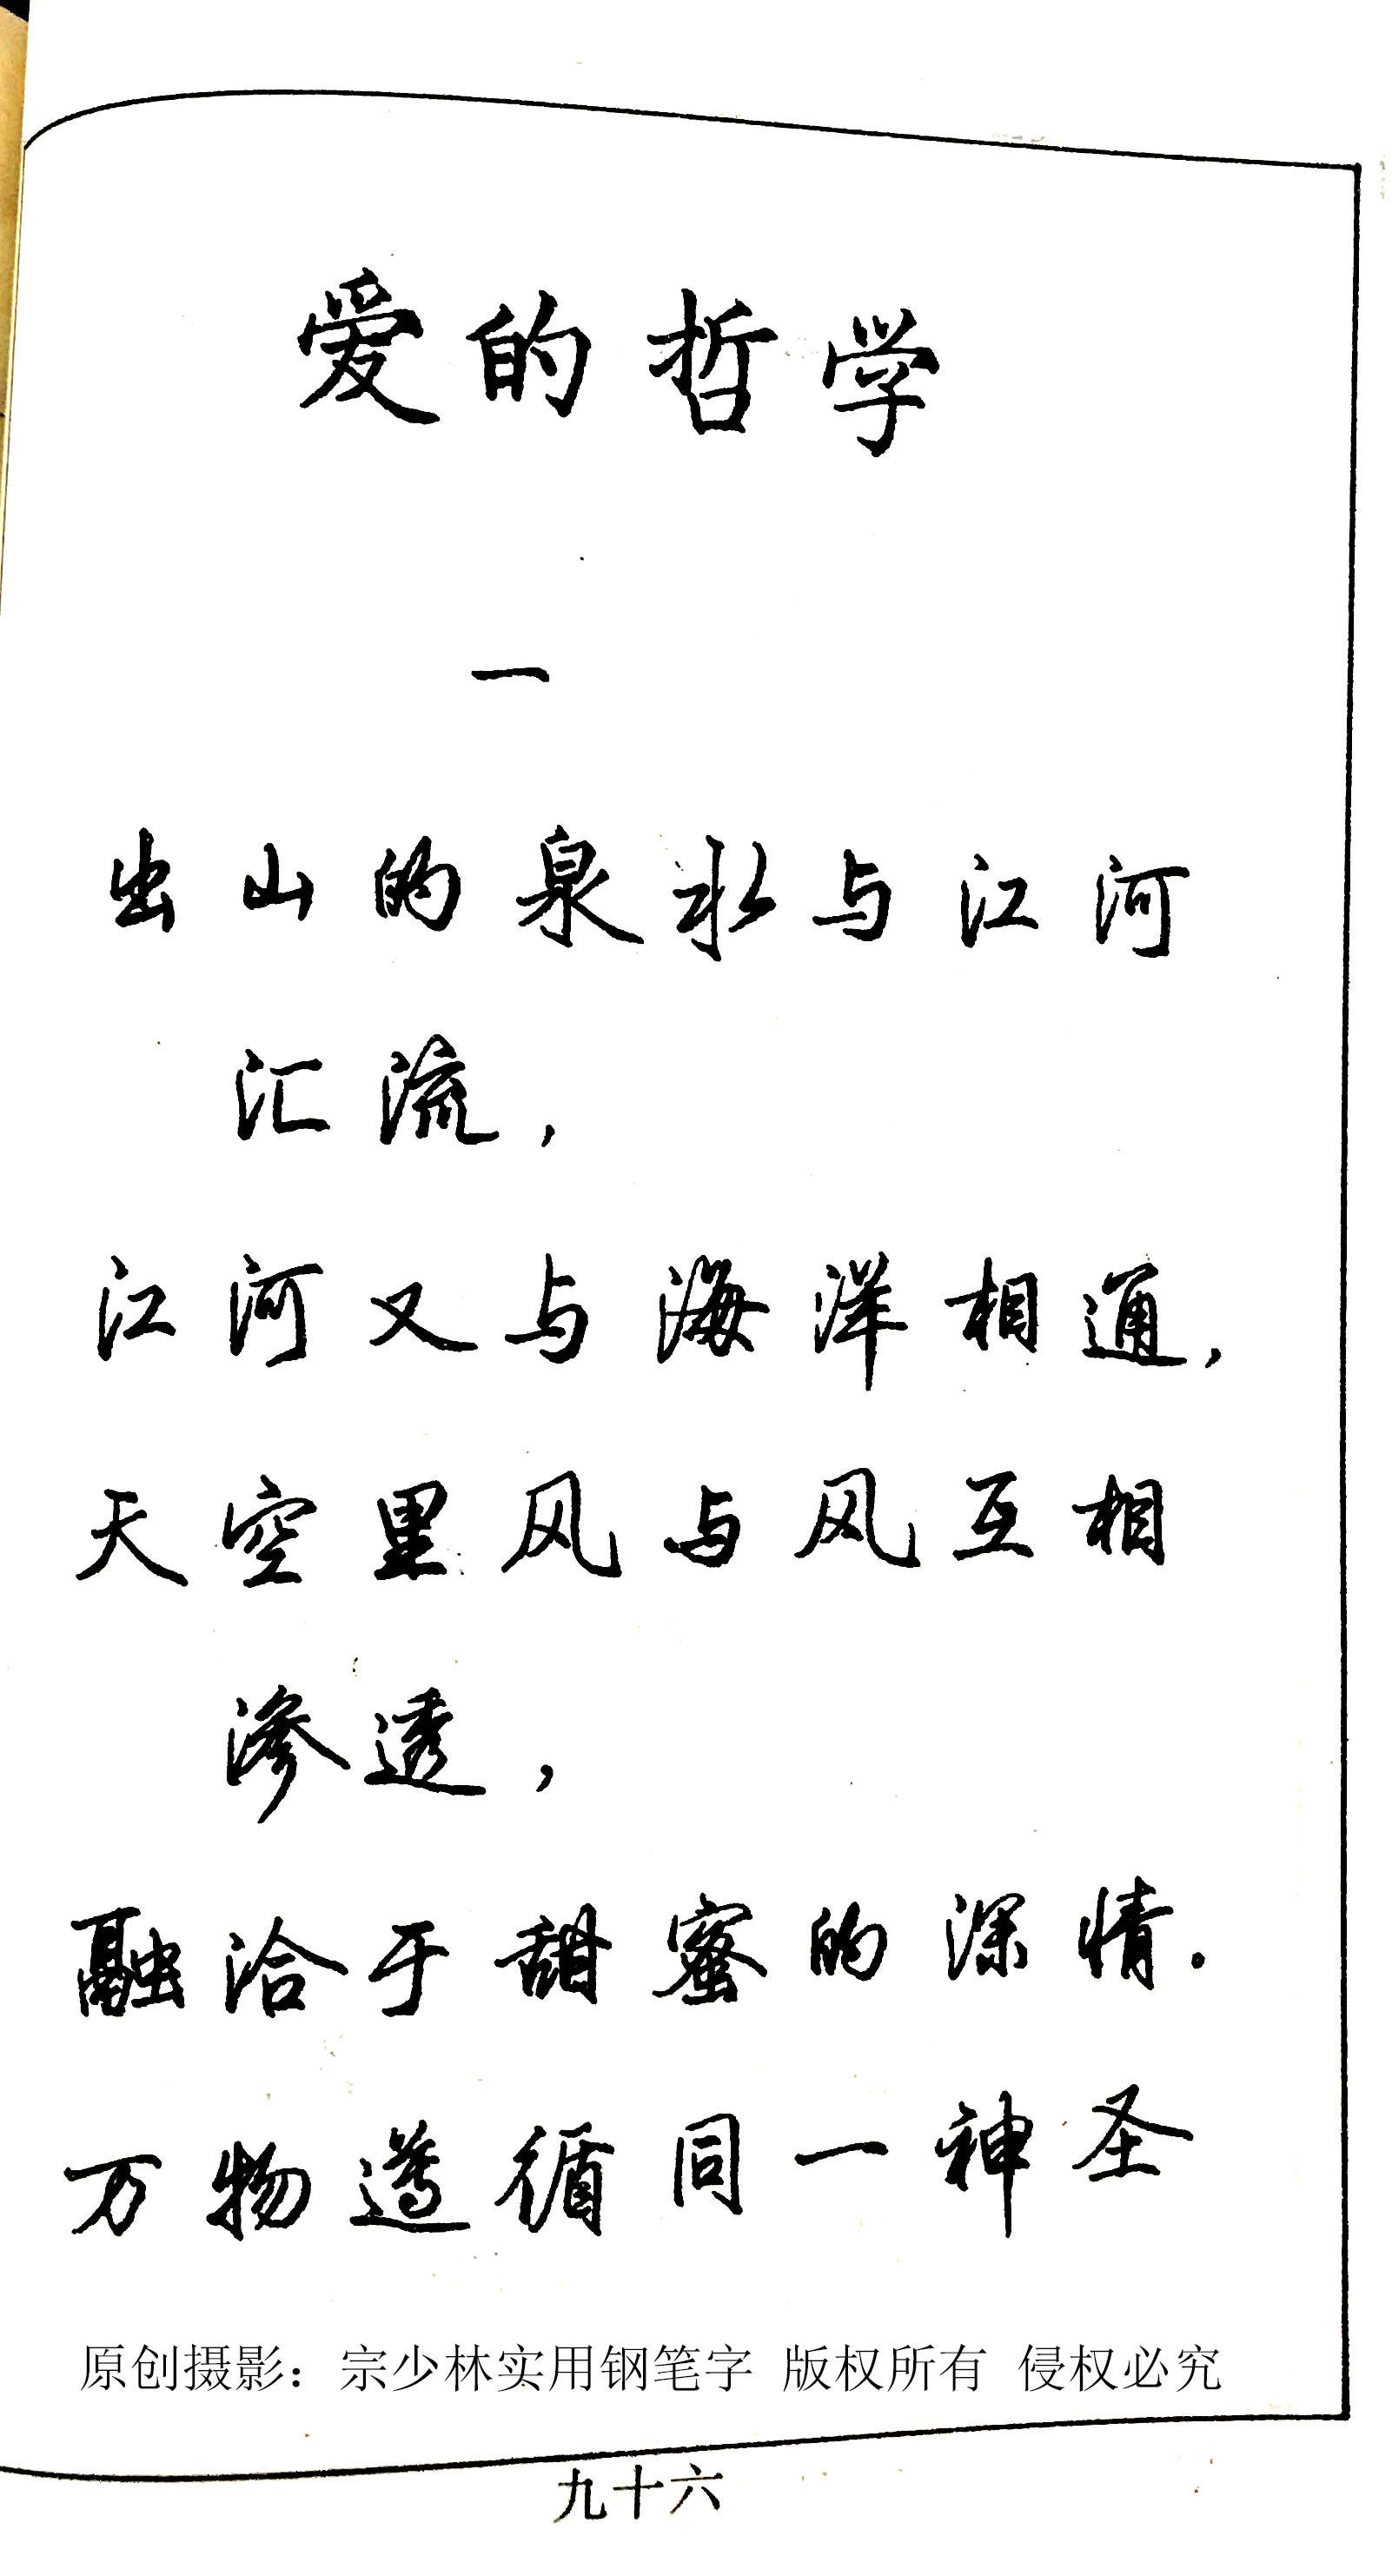 爱的哲学
一
出山的泉水与江河
汇流，
江河又与海洋相通，
天空里风与风互相
渗透，
融洽于甜蜜的深情．
万物遵循同一神圣
原创摄影：宗少林实用钢笔字 版权所有 侵权必究
九十六